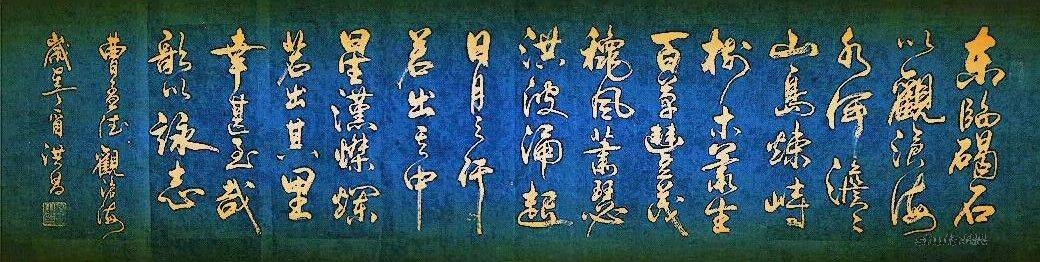 东临碣石
以觀滄海
水何澹々
山島竦峙
樹木叢生
百草豐茂
穐風蕭瑟
洪波涌起
日月之行
若出其中
星漢燦爛
若出其里
幸甚至哉
歌以詠志
曹孟德觀滄海
洪昌